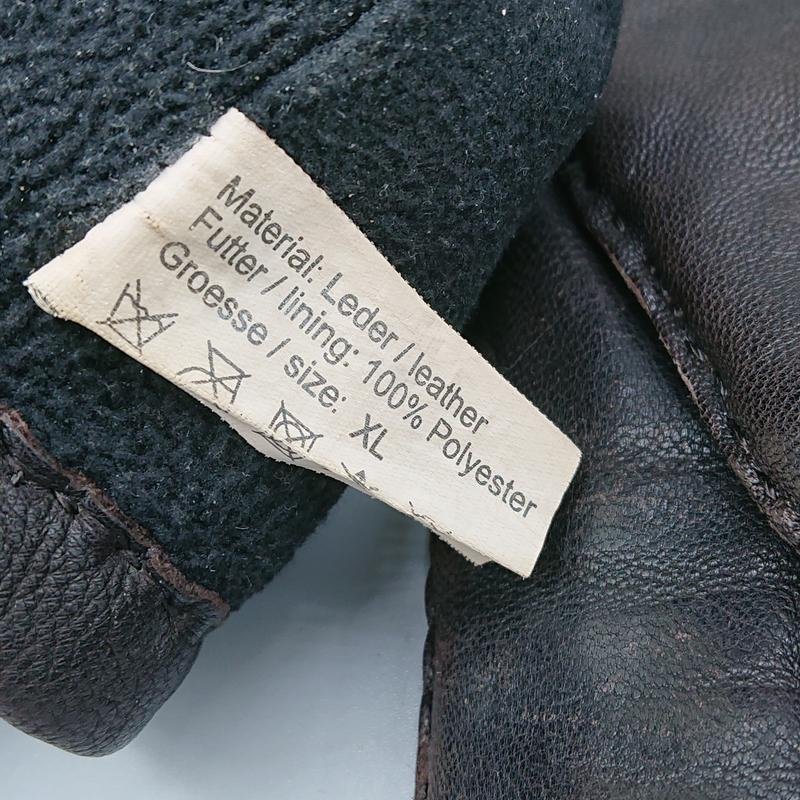 Material: Leder / leather
Futter / lining: 100% Polyester
Groesse / size: XL